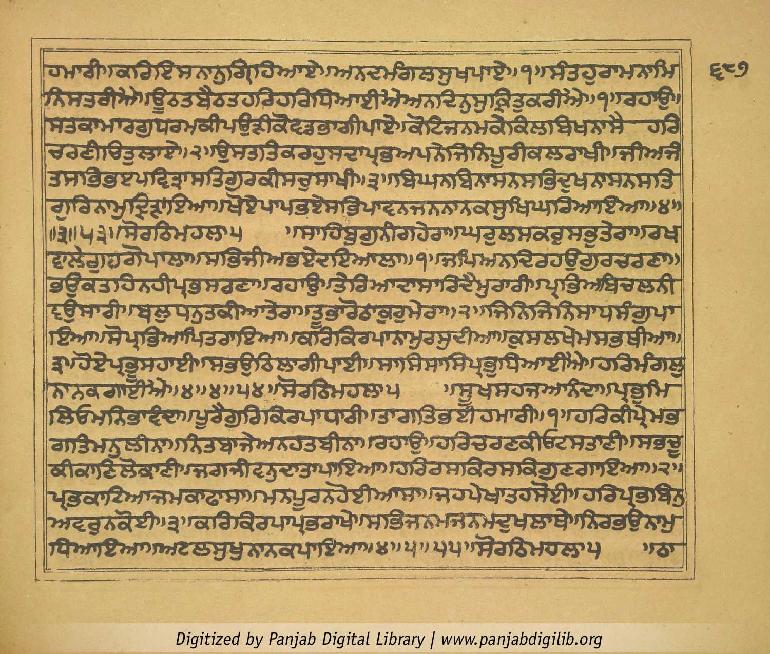 ੬੮੭
ਹਮਾਰੀ॥ਕਰਿਇਸਨਾਨੁਗ੍ਰਿਹਿਆਏ॥ਅਨਦਮੰਗਲਸੁਖਪਾਏ॥੧॥ਸੰਤਹੁਰਾਮਨਾਮਿ
ਨਿਸਤਰੀਐ॥ਊਠਤਬੈਠਤਹਰਿਹਰਿਧਿਆਈਐਅਨਦਿਨੁਸੁਕ੍ਰਿਤੁਕਰੀਐ॥੧॥ਰਹਾਉ॥
ਸੰਤਕਾਮਾਰਗੁਧਰਮਕੀਪਉੜੀਕੋਵਡਭਾਗੀਪਾਏ॥ਕੋਟਿਜਨਮਕੇਕਿਲਬਿਖਨਾਸੇ ਹਰਿ
ਚਰਣੀਚਿਤੁਲਾਏ॥੨॥ਉਸਤਤਿਕਰਹੁਸਦਾਪ੍ਰਭਅਪਨੇਜਿਨਿਪੂਰੀਕਲਰਾਖੀ॥ਜੀਅਜੰ
ਤਸਭਿਭਏਪਵਿਤ੍ਰਾਸਤਿਗੁਰਕੀਸਚੁਸਾਖੀ॥੩॥ਬਿਘਨਬਿਨਾਸਨਸਭਿਦੁਖਨਾਸਨਸਤਿ
ਗੁਰਿਨਾਮੁਦ੍ਰਿੜਾਇਆ॥ਖੋਏਪਾਪਭਏਸਭਿਪਾਵਨਜਨਨਾਨਕਸੁਖਿਘਰਿਆਇਆ॥੪॥
॥੩॥੫੩॥ਸੋਰਠਿਮਹਲਾ੫ ॥ਸਾਹਿਬੁਗੁਨੀਗਹੇਰਾ॥ਘਰੁਲਸਕਰੁਸਭੁਤੇਰਾ॥ਰਖ
ਵਾਲੇਗੁਰਗੋਪਾਲਾ॥ਸਭਿਜੀਅਭਏਦਇਆਲਾ॥੧॥ਜਪਿਅਨਦਿਰਹਉਗੁਰਚਰਣਾ॥
ਭਉਕਤਹਿਨਹੀਪ੍ਰਭਸਰਣਾ॥ਰਹਾਉ॥ਤੇਰਿਆਦਾਸਾਰਿਦੈਮੁਰਾਰੀ॥ਪ੍ਰਭਿਅਬਿਚਲਨੀ
ਵਉਸਾਰੀ॥ਬਲੁਧਨੁਤਕੀਆਤੇਰਾ॥ਤੂਭਾਰੋਠਾਕੁਰੁਮੇਰਾ॥੨॥ਜਿਨਿਜਿਨਿਸਾਧਸੰਗੁਪਾ
ਇਆ॥ਸੋਪ੍ਰਭਿਆਪਿਤਰਾਇਆ॥ਕਰਿਕਿਰਪਾਨਾਮਰਸੁਦੀਆ॥ਕੁਸਲਖੇਮਸਭਥੀਆ॥
੩॥ਹੋਏਪ੍ਰਭੂਸਹਾਈ॥ਸਭਉਠਿਲਾਗੀਪਾਈ॥ਸਾਸਿਸਾਸਿਪ੍ਰਭੁਧਿਆਈਐ॥ਹਰਿਮੰਗਲੁ
ਨਾਨਕਗਾਈਐ॥੪॥੪॥੫੪॥ਸੋਰਠਿਮਹਲਾ੫ ॥ਸੂਖਸਹਜਆਨੰਦਾ॥ਪ੍ਰਭੁਮਿ
ਲਿਓਮਨਿਭਾਵੰਦਾ॥ਪੂਰੈਗੁਰਿਕਿਰਪਾਧਾਰੀ॥ਤਾਗਤਿਭਈਹਮਾਰੀ॥੧॥ਹਰਿਕੀਪ੍ਰੇਮਭ
ਗਤਿਮਨੁਲੀਨਾ॥ਨਿਤਬਾਜੇਅਨਹਤਬੀਨਾ॥ਰਹਾਉ॥ਹਰਿਚਰਣਕੀਓਟਸਤਾਣੀ॥ਸਭਚੂ
ਕੀਕਾਣਿਲੋਕਾਣੀ॥ਜਗਜੀਵਨੁਦਾਤਾਪਾਇਆ॥ਹਰਿਰਸਕਿਰਸਕਿਗੁਣਗਾਇਆ॥੨॥
ਪ੍ਰਭਕਾਟਿਆਜਮਕਾਫਾਸਾ॥ਮਨਪੂਰਨਹੋਈਆਸਾ॥ਜਹਪੇਖਾਤਹਸੋਈ॥ਹਰਿਪ੍ਰਭਬਿਨੁ
ਅਵਰੁਨਕੋਈ॥੩॥ਕਰਿਕਿਰਪਾਪ੍ਰਭਿਰਾਖੇ॥ਸਭਿਜਨਮਜਨਮਦੁਖਲਾਥੇ॥ਨਿਰਭਉਨਾਮੁ
ਧਿਆਇਆ॥ਅਟਲਸੁਖੁਨਾਨਕਪਾਇਆ॥੪॥੫॥੫੫॥ਸੋਰਠਿਮਹਲਾ੫ ॥ਠਾ
Digitized by Panjab Digital Library | www.panjabdigilib.org